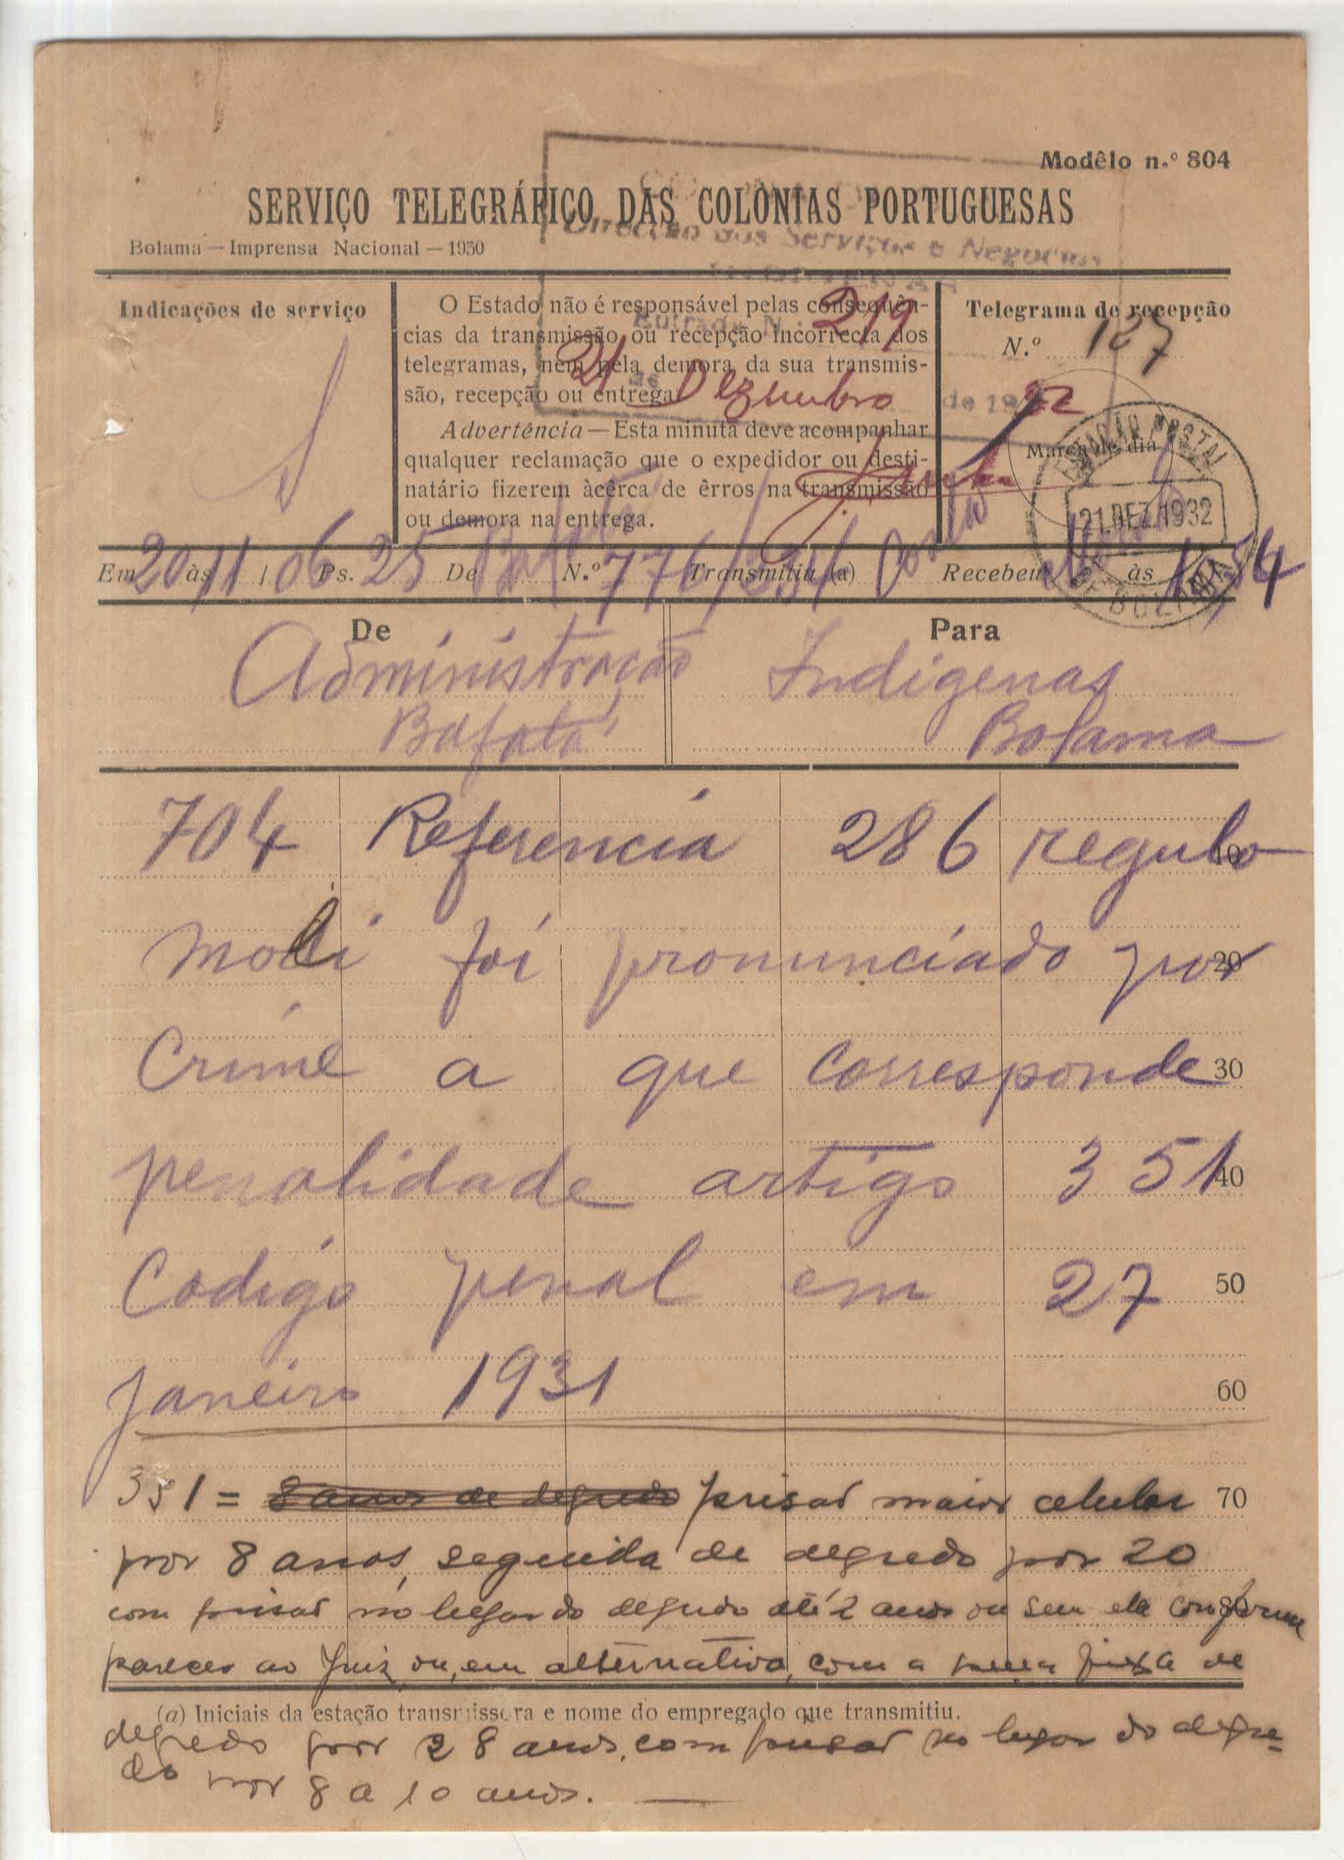 Modêlo n.º 804
SERVIÇO TELEGRÁFICO DAS COLONIAS PORTUGUESAS
Bolama — Imprensa Nacional — 1930
Direcção dos Serviços e Negocios
Indicações de serviço
O Estado não é responsável pelas consequên-
cias da transmissão ou recepção incorrecta dos
telegramas, nem pela demora da sua transmis-
são, recepção ou entrega.
Advertência — Esta minuta deve acompanhar
qualquer reclamação que o expedidor ou desti-
natário fizerem àcêrca de êrros na transmissão
ou demora na entrega.
Entrada N.º 219
21 de Dezembro de 1932
Telegrama de recepção
N.º 127
Marca do dia
ESTAÇÃO POSTAL
21.DEZ.1932
DE BOLAMA
Em 20 às 11 / 06 Ps. 25 De N.º 776/ Transmitiu (a) Recebeu às
De
Administração
Bafatá
Para
Indigenas
Bolama
704 Referencia 286 regulo 10
Moli foi pronunciado por 20
Crime a que corresponde 30
penalidade artigo 351 40
Codigo penal em 27 50
Janeiro 1931 60
351 = 8 anos de degredo prisaõ maior celular 70
por 8 anos, seguida de degredo por 20
com prisaõ no lugar do degredo até 2 anos ou sem ela conforme 80
parecer ao Juiz, ou, em alternativa, com a pena fixa de
(a) Iniciais da estação transmissora e nome do empregado que transmitiu.
degredo por 28 anos, com prisaõ no lugar do degre-
do por 8 a 10 anos.